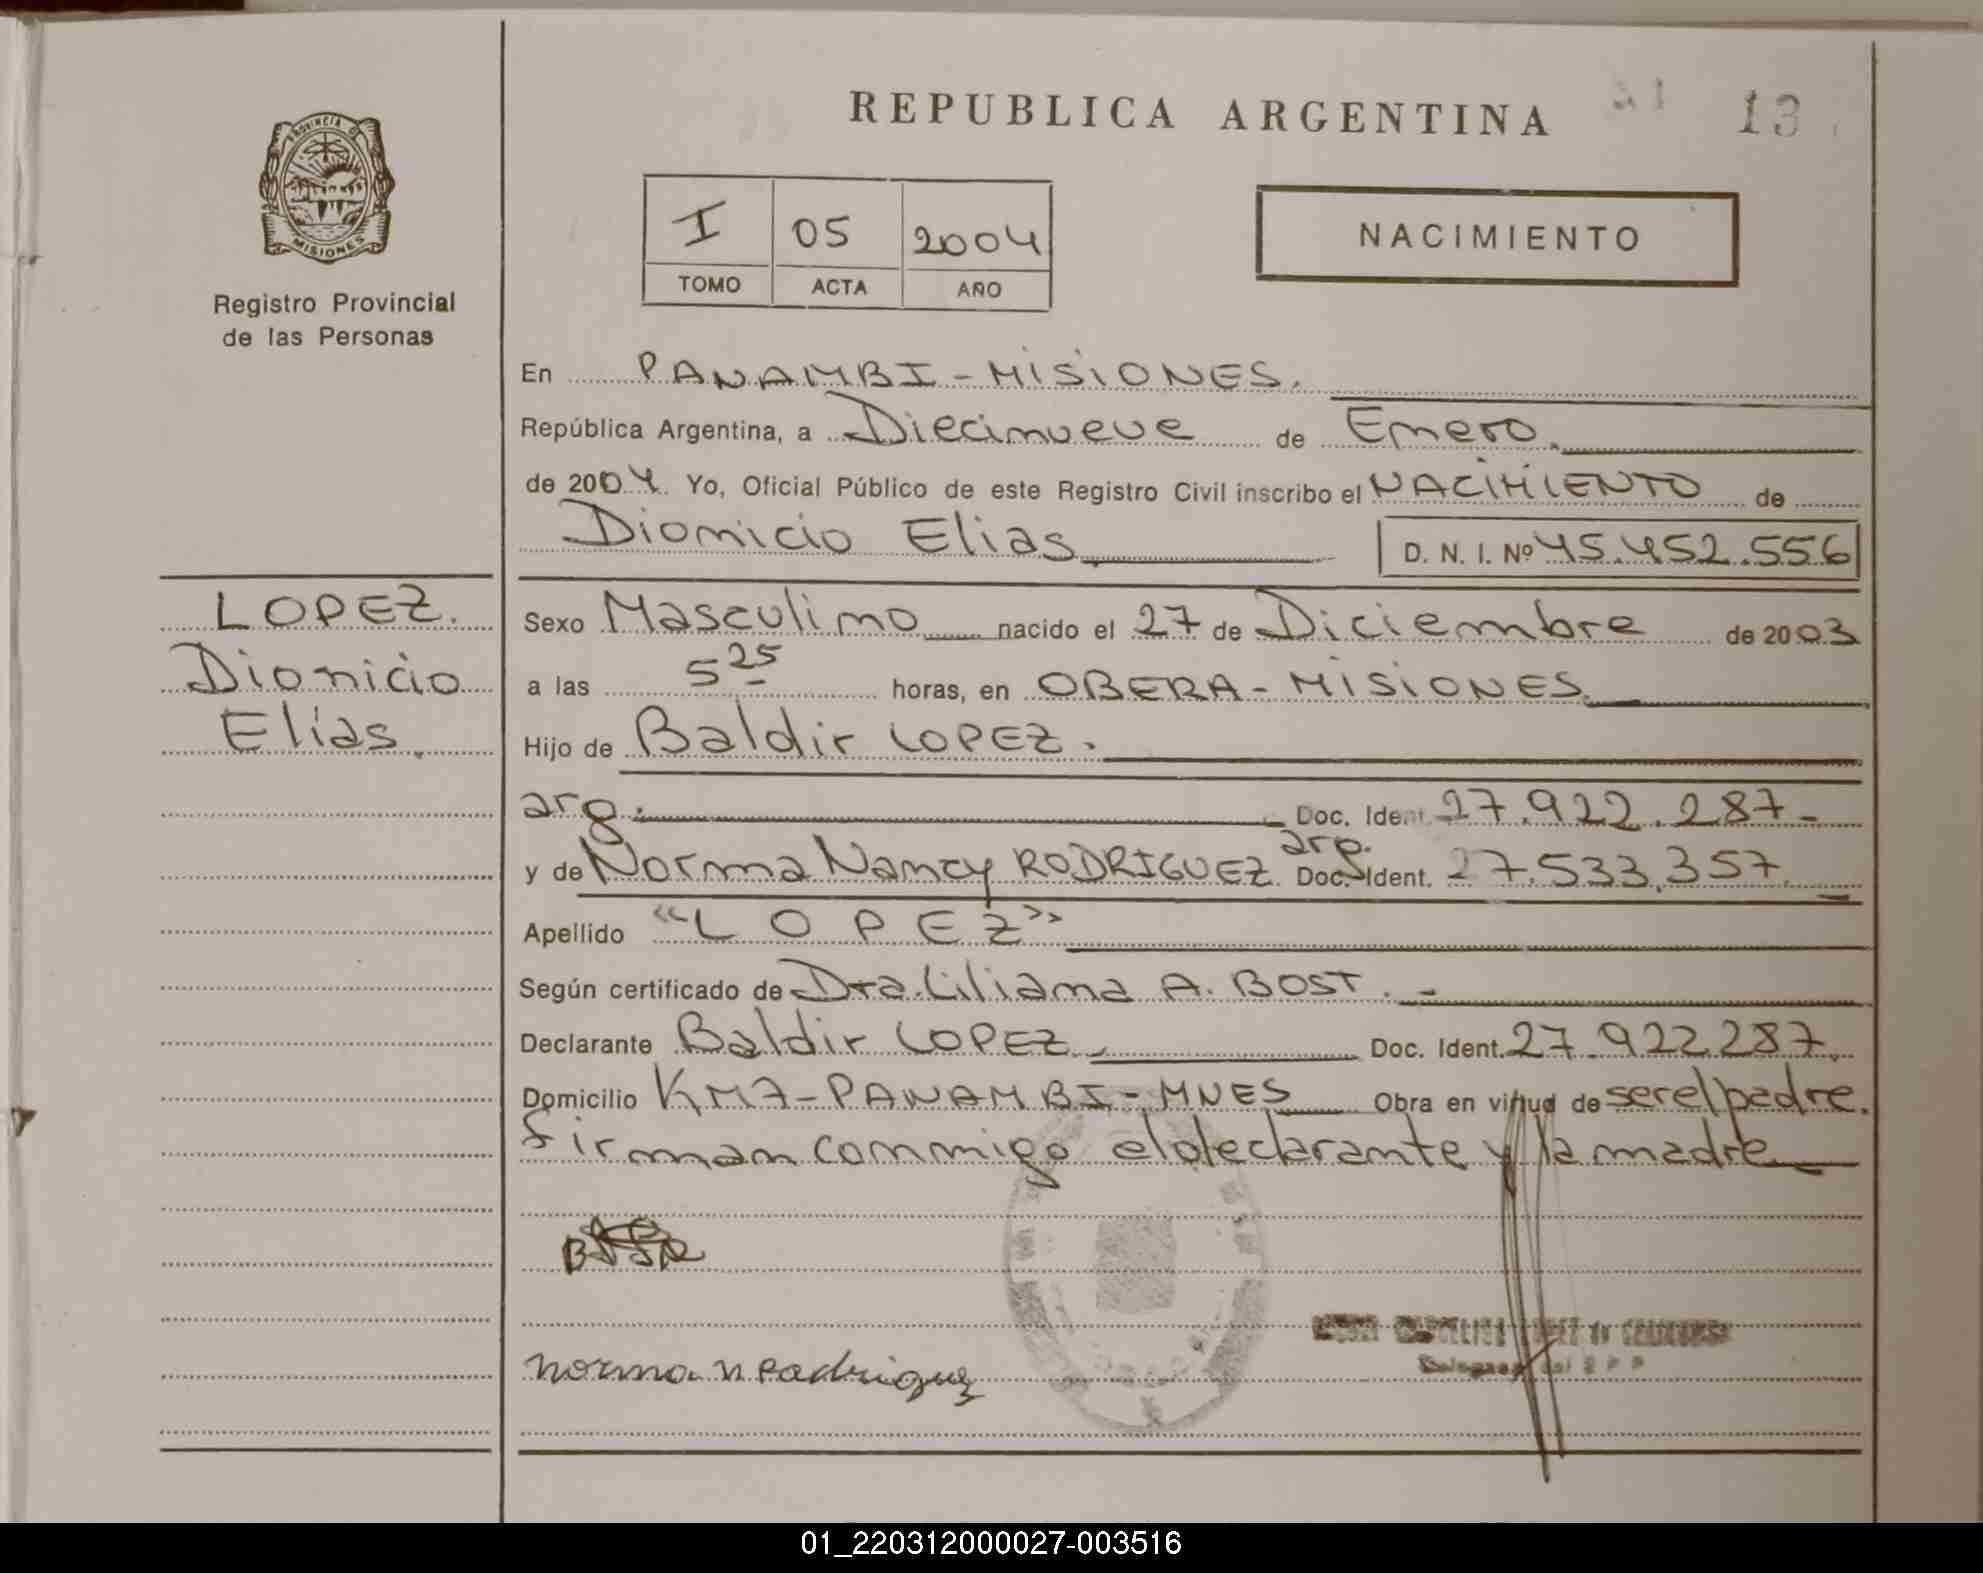 REPUBLICA ARGENTINA
13
PROVINCIA DE
MISIONES
Registro Provincial
de las Personas
I 05 2004
TOMO ACTA AÑO
NACIMIENTO
En PANAMBI - MISIONES.
República Argentina, a Diecinueve de Enero.
de 2004. Yo, Oficial Público de este Registro Civil inscribo el NACIMIENTO de
Dionicio Elias D. N. I. Nº 45.452.556
LOPEZ.
Dionicio
Elías.
Sexo Masculino nacido el 27 de Diciembre de 2003
a las 5 25 horas, en OBERA - MISIONES
Hijo de Baldir LOPEZ.
arg. Doc. Ident. 27.922.287-
y de Norma Nancy RODRIGUEZ arg. Doc. Ident. 27.533.357
Apellido "LOPEZ"
Según certificado de Dra. Liliana A. BOST. -
Declarante Baldir LOPEZ Doc. Ident. 27.922.287.
Domicilio KM7-PANAMBI-MNES Obra en virtud de ser el padre.
firman conmigo el declarante y la madre
norma n Rodriguez
01_220312000027-003516